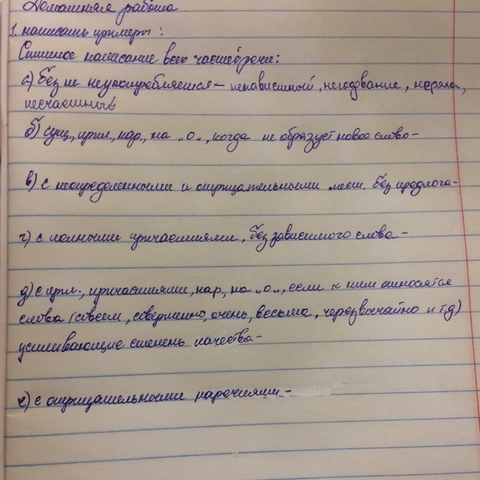 Домашняя работа.
1. написать примеры:
Слитное написание всех частей речи:
а) без не неупотребляется – ненавистный, негодование, неряха,
несчастный
б) сущ., прил., нар., на „о", когда не образует новое слово –
в) с неопределенными и отрицательными мест. без предлога –
г) с полными причастиями, без зависимого слова –
д) с прил., причастиями, нар., на „о", если к ним относятся
слова (совсем, совершенно, очень, весьма, черезвычайно и т.д)
усиливающие степень качества –
е) с отрицательными наречиями –